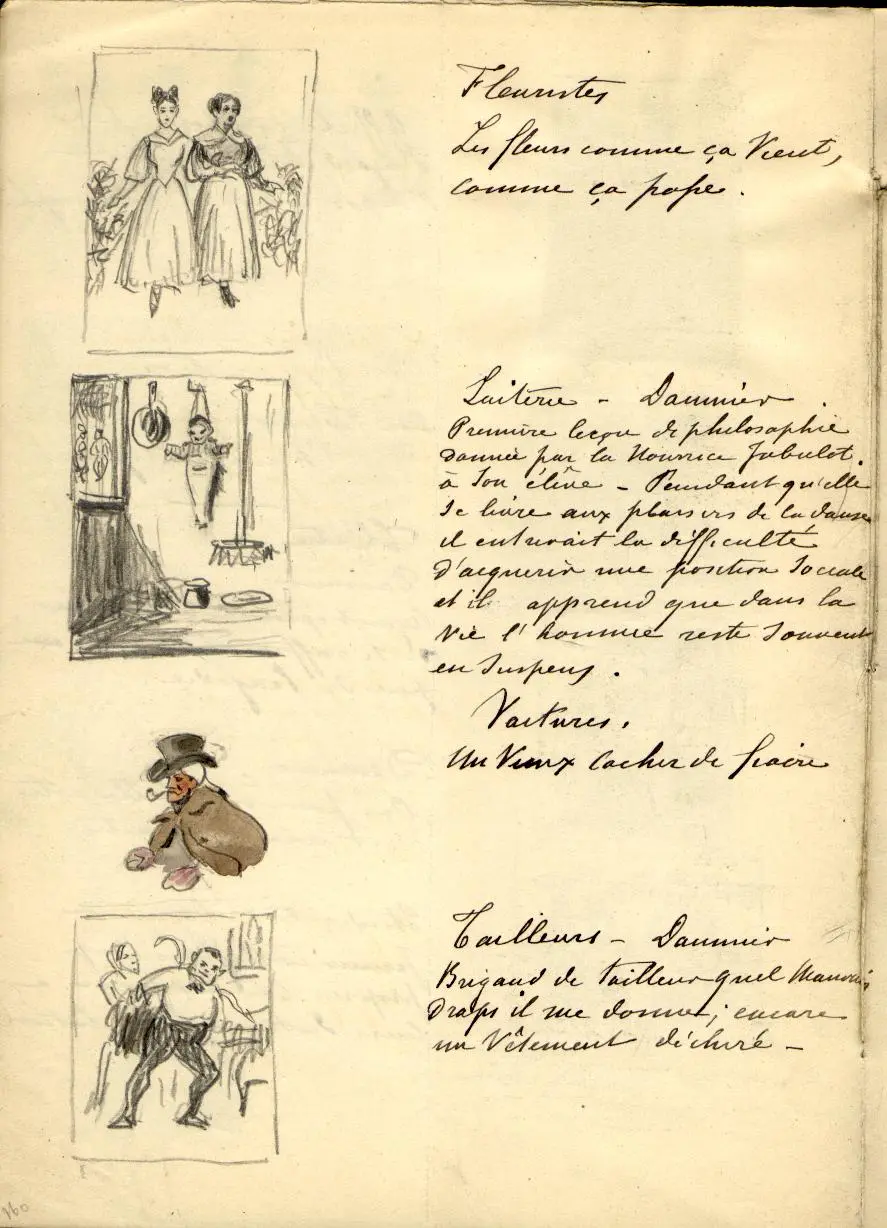 Fleuristes
Les fleurs comme ça Vient,
comme ça passe.
Laiterie - Daumier.
Première leçon de philosophie
donnée par la Nourrice Jabulot.
à Son élève - Pendant qu'elle
Se livre aux plaisirs de la danse
il entrevoit la difficulté
d'acquerir une position Sociale
et il apprend que dans la
Vie l'homme reste Souvent
en Suspens.
Voitures.
Un Vieux Cocher de fiacre
Tailleurs - Daumier
Brigand de tailleur quel Mauvais
Draps il me donne; encore
un Vêtement déchiré -
160